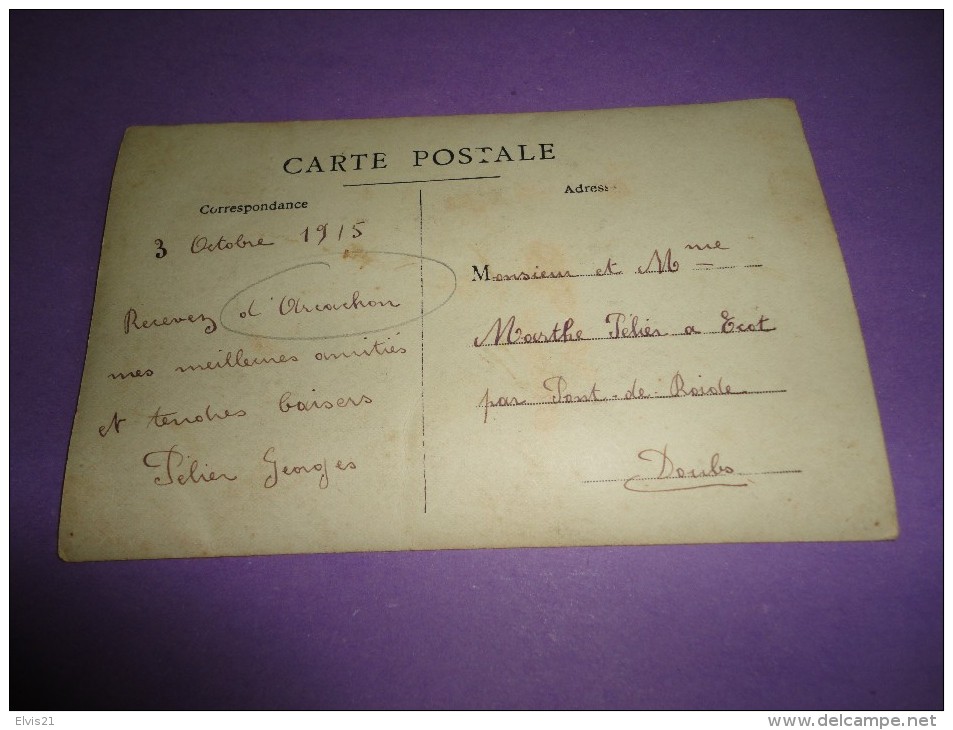 CARTE POSTALE
Correspondance
3 Octobre 1915
Recevez d'Arcachon
mes meilleures amitiés
et tendres baisers
Pélier Georges
Adresse
Monsieur et Mme
Marthe Pélier a Ecot
par Pont-de-Roide
Doubs
Elvis21
www.delcampe.net